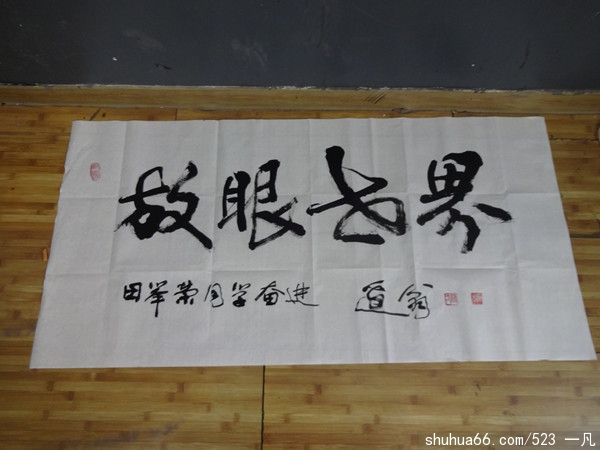 放眼世界
田举荣同学奋进 道翁
shuhua66.com/523 一凡